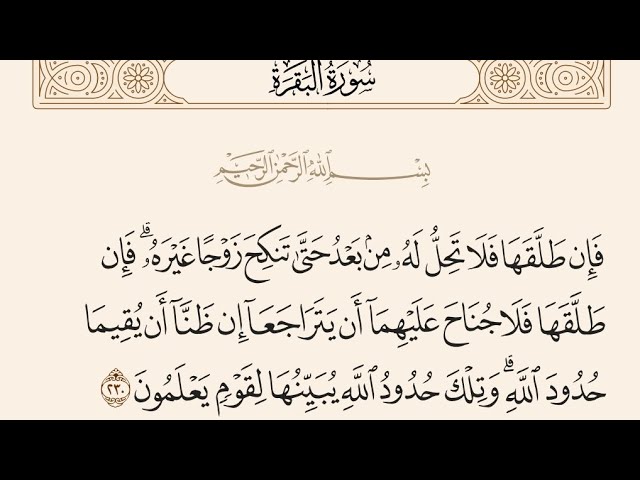 سُورَةُ الْبَقَرَةِ
بِسْمِ اللَّهِ الرَّحْمَٰنِ الرَّحِيمِ
فَإِن طَلَّقَهَا فَلَا تَحِلُّ لَهُۥ مِنۢ بَعْدُ حَتَّىٰ تَنكِحَ زَوْجًا غَيْرَهُۥ ۗ فَإِن
طَلَّقَهَا فَلَا جُنَاحَ عَلَيْهِمَآ أَن يَتَرَاجَعَآ إِن ظَنَّآ أَن يُقِيمَا
حُدُودَ ٱللَّهِ ۗ وَتِلْكَ حُدُودُ ٱللَّهِ يُبَيِّنُهَا لِقَوْمٍ يَعْلَمُونَ ٢٣٠